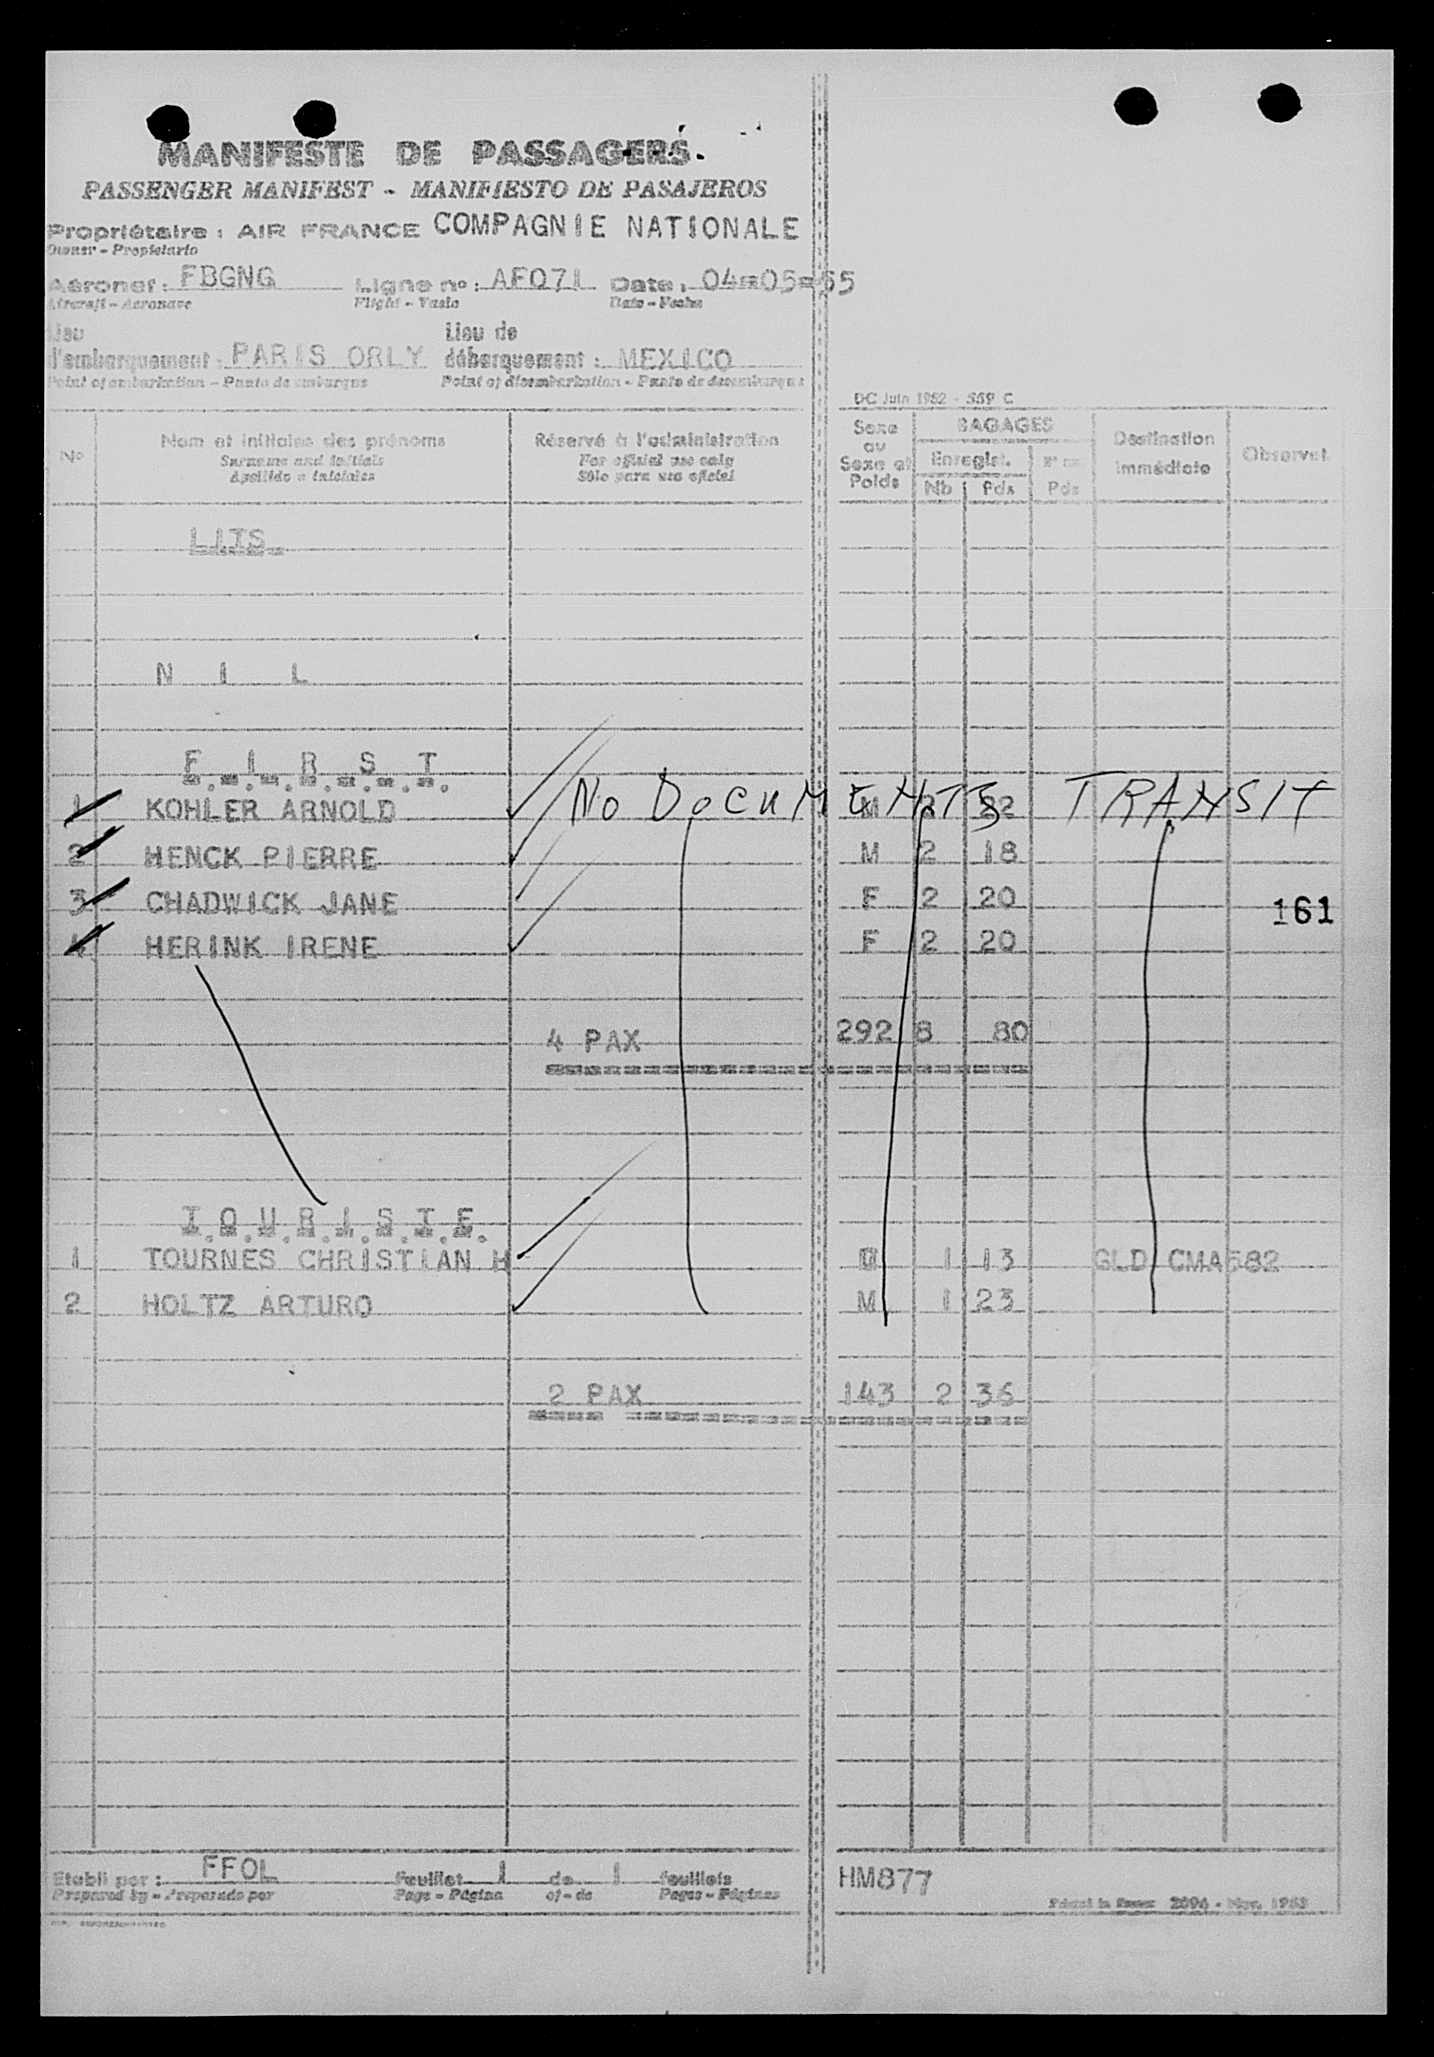 MANIFESTE DE PASSAGERS.
PASSENGER MANIFEST - MANIFIESTO DE PASAJEROS
Propriétaire : AIR FRANCE COMPAGNIE NATIONALE
Owner - Propietario
Aéronef : FBGNG Ligne no : AF071 Date : 04=05=55
Aircraft - Aeronave Flight - Vuelo Date - Fecha
Lieu Lieu de
d'embarquement : PARIS ORLY débarquement : MEXICO
Point of embarkation - Punto de embarque Point of disembarkation - Punto de desembarque
DC Juin 1952 - 559 C
No Nom et initiales des prénoms Réservé à l'administration Sexe ou Sexe et Poids BAGAGES Destination immédiate Observat.
Surname and initials For official use only Enregist.
Apellido e iniciales Sólo para uso oficial Nb Pds Pds
LITS
N I L
F.I.R.S.T.
1 KOHLER ARNOLD M 2 22
No DOCUMENTS TRANSIT
2 HENCK PIERRE M 2 18
3 CHADWICK JANE F 2 20
161
4 HERINK IRENE F 2 20
4 PAX 292 8 80
T.O.U.R.I.S.T.E.
1 TOURNES CHRISTIAN H 1 13 GLD CMA582
2 HOLTZ ARTURO M 1 23
2 PAX 143 2 36
Etabli par : FFOL Feuillet 1 de 1 feuillets HM877
Prepared by - Preparado por Page - Página of - de Pages - Páginas
Printed in France 2096 - Nov. 1953